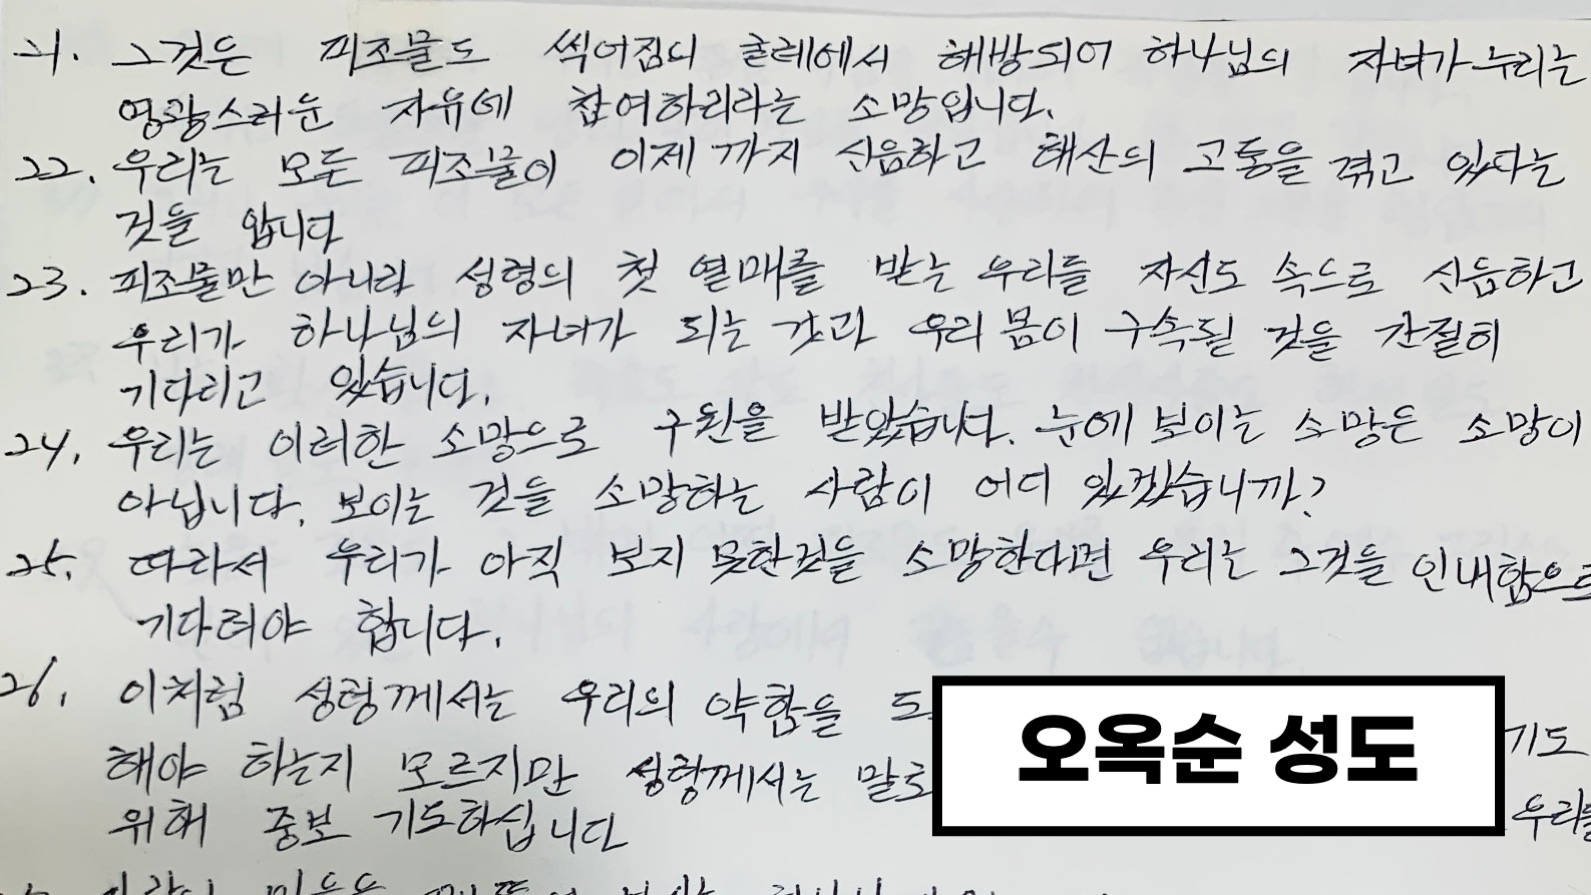 21. 그것은 피조물도 썩어짐의 굴레에서 해방되어 하나님의 자녀가 누리는
영광스러운 자유에 참여하리라는 소망입니다.
22. 우리는 모든 피조물이 이제까지 신음하고 해산의 고통을 겪고 있다는
것을 압니다
23. 피조물만 아니라 성령의 첫 열매를 받는 우리들 자신도 속으로 신음하고
우리가 하나님의 자녀가 되는 것과 우리 몸이 구속될 것을 간절히
기다리고 있습니다.
24. 우리는 이러한 소망으로 구원을 받았습니다. 눈에 보이는 소망은 소망이
아닙니다. 보이는 것을 소망하는 사람이 어디 있겠습니까?
25. 따라서 우리가 아직 보지 못한것을 소망한다면 우리는 그것을 인내함으로
기다려야 합니다.
26. 이처럼 성령께서는 우리의 약함을
해야 하는지 모르지만 성령께서는 기도
위해 중보 기도하십니다 우리를
오옥순 성도